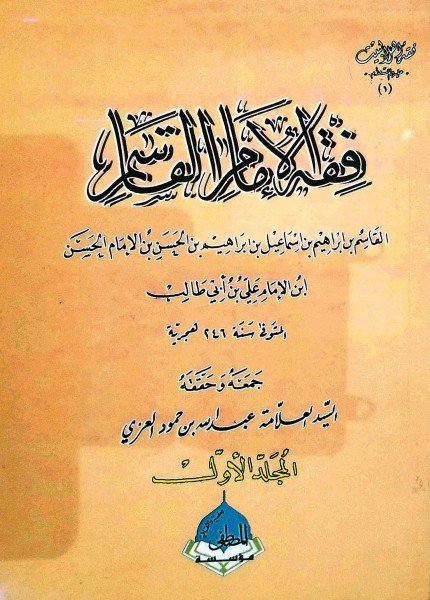 فقه آل البيت
عليهم السلام
(١)
فقه الإمام القاسم
القاسم بن إبراهيم بن إسماعيل بن إبراهيم بن الحسن بن الإمام الحسن
ابن الإمام علي بن أبي طالب
المتوفى سنة ٢٤٦ هجرية
جمعه وحققه
السيد العلامة عبدالله بن حمود العزي
المجلد الأول
المصطفى
مؤسسة